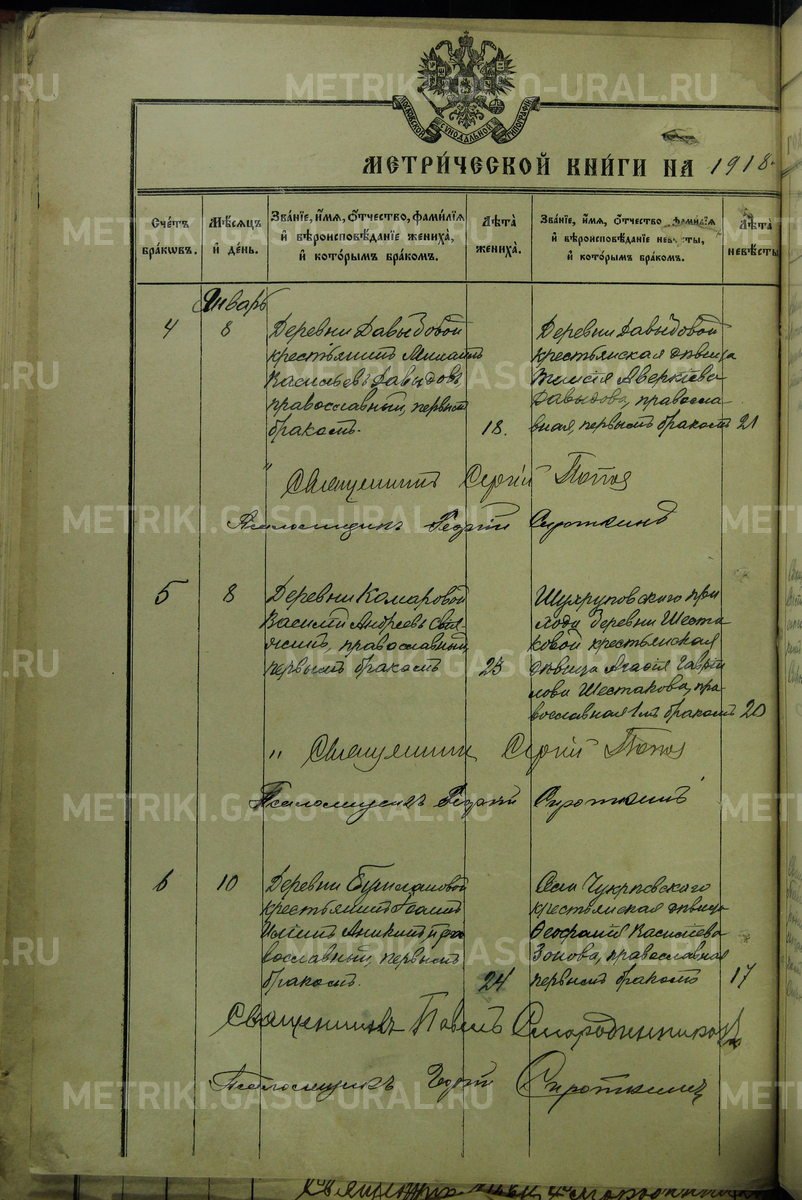 МОСКОВСКОЙ СѴНОДАЛЬНОЙ ТИПОГРАФІИ
МЕТРИ́ЧЕСКОЙ КНИ́ГИ НА 1918
Сче́тъ бра́кѡвъ.
Мѣ́сяцъ и де́нь.
Зва́нїе, и́мя, ѻ́тчество, фами́лїя
и вѣроисповѣ́данїе жениха̀,
и кото́рымъ бра́комъ.
Лѣ́та жениха̀.
Зва́нїе, и́мя, ѻ́тчество фами́лїя
и вѣроисповѣ́данїе невѣ́сты,
и кото́рымъ бра́комъ.
Лѣ́та невѣ́сты
Январь
4
8
Деревни Давыдовой
крестьянинъ
Васильевъ Давыдовъ,
православный, первымъ
бракомъ.
18.
Деревни Давыдовой
крестьянская дѣвица
Аверкіева
Давыдова, правосла-
вная, первымъ бракомъ
21
Священникъ Сергій Попов
Псаломщикъ Георгій Сироткинъ
5
8
Деревни Комаровой
Василій Андреевъ
православный,
первымъ бракомъ
23
при
хода деревни Шеста
ковой крестьянская
дѣвица Агафія Гаврі
лова Шестакова, пра-
вославная 1мъ бракомъ
20
" Священникъ Сергій Попов
Псаломщикъ Георгій Сироткинъ
6
10
Деревни
крестьянинъ
пра
вославный, первымъ
бракомъ.
24
Села
крестьянская дѣвица
Васильева
Зонова, православная
первымъ бракомъ
17
Священникъ Павелъ Смородинников
Псаломщикъ Георгій Сироткинъ
METRIKI.GASO-URAL.RU